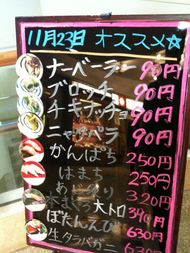 11月23日 オススメ☆
ナーベーラー 90円
ブロッチ 90円
チキナッチョ 90円
ニャッパラ 90円
かんぱち 250円
はまち 250円
320円
本まぐろ 大トロ 340円
ぼたんえび 630円
生タラバガニ 630円